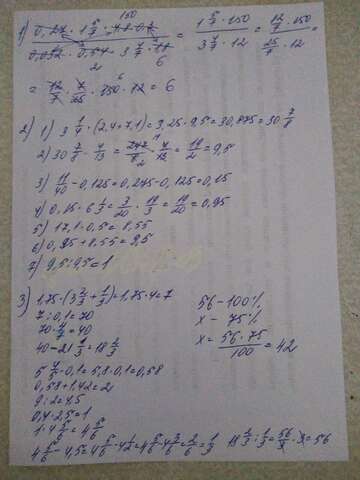 150
1) 0,27 · 1 5/7 · 4,8 · 0,2 / 0,032 · 0,54 · 3 4/7 · = 1 5/7 · 150 / 3 4/7 · 12 = 12/7 · 150 / 25/7 · 12 =
2 6
= 12/7 · 7/25 · 150 · 12 = 6
2) 1) 3 1/4 · (2,4+7,1) = 3,25 · 9,5 = 30,875 = 30 7/8
2) 30 7/8 · 4/13 = 247/8 · 4/13 = 19/2 = 9,5
3) 11/40 - 0,125 = 0,275 - 0,125 = 0,15
4) 0,15 · 6 1/3 = 3/20 · 19/3 = 19/20 = 0,95
5) 17,1 · 0,5 = 8,55
6) 0,95 + 8,55 = 9,5
7) 9,5 : 9,5 = 1
3) 1,75 · (3 2/3 + 1/3) = 1,75 · 4 = 7
7 : 0,1 = 70
70 · 4/7 = 40
40 - 21 1/3 = 18 2/3
5 4/5 · 0,1 = 5,8 · 0,1 = 0,58
0,58 + 1,42 = 2
9 : 2 = 4,5
0,4 · 2,5 = 1
1 · 4 5/6 = 4 5/6
4 5/6 - 4,5 = 4 5/6 - 4 1/2 = 4 5/6 - 4 3/6 = 2/6 = 1/3
18 2/3 : 1/3 = 56/3 · 3 = 56
56 - 100%
x - 75%
x = 56 · 75 / 100 = 42